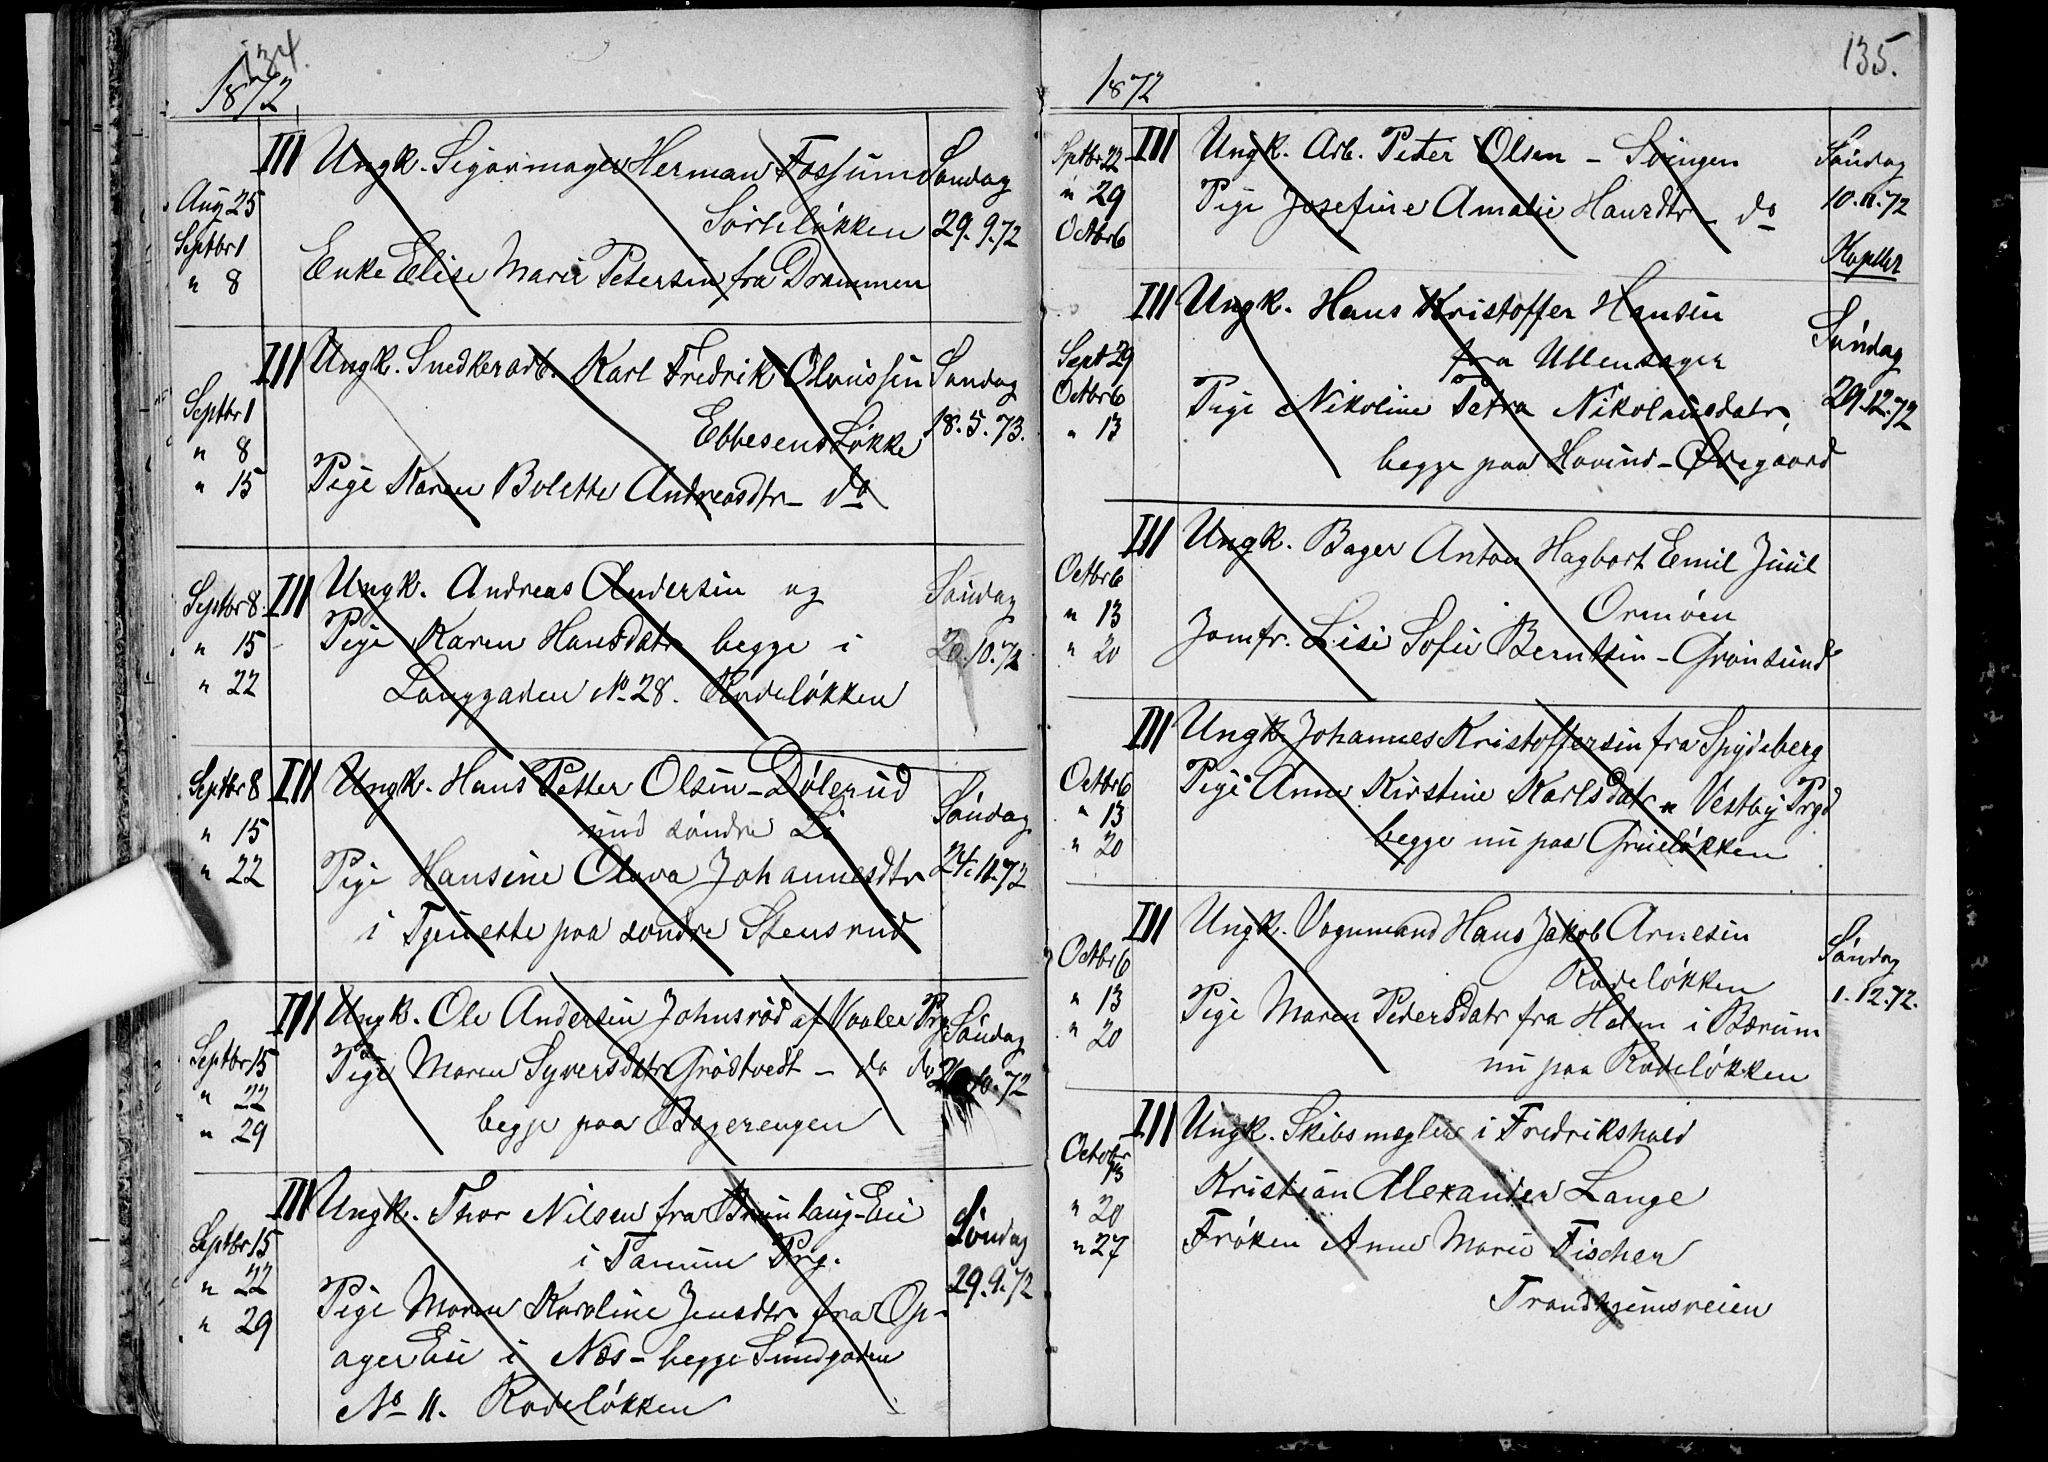 134.
1872
III Ungk. Sigarmager Herman Fossum Søndag
Aug 25
Sørliløkken 29.9.72
Septbr 1
Enke Elise Marie Petersen fra Drammen
" 8
III Ungk. Snedkerarb. Karl Fredrik Olaussen Søndag
Septbr 1
Ebbesens Løkke 18.5.73.
" 8
" 15 Pige Karen Bolette Andreasdtr - do
Septbr 8. III Ungk. Andreas Andersen og Søndag
" 15 Pige Karen Hansdatr begge i 20.10.72
" 22 Langgaden No 28. Rodeløkken
Septbr 8 III Ungk. Hans Petter Olsen - Dølerud Søndag
" 15 und søndre Li
" 22 Pige Hansine Olava Johannesdtr 24.11.72
i Tjeneste paa søndre Stensrud
III Ungk. Ole Andersen Johnsrød af Vaaler Prg. Søndag
Septbr 15 Pige Maren Syversdatr Grødtvedt - do do 10.72
" 22
" 29 begge paa Bagerengen
III Ungk. Thor Nilsen fra Eie Søndag
Septbr 15 i Tanum Prg.
" 22 Pige Maren Karoline Jensdtr fra Op- 29.9.72
" 29 ager Eie i Næs - begge Sundgaden
No 11. Rodeløkken
135.
1872
Septbr 22 III Ungk. Arb. Peter Olsen - Svingen Søndag
" 29 Pige Josefine Amalie Hansdtr - do 10.11.72
Octbr 6 Kapellet
III Ungk. Hans Kristoffer Hansen Søndag
Sept 29 fra Ullensager
Octbr 6 Pige Nikoline Petra Nikolaisdatr, 29.12.72
" 13 begge paa Hovind - Øvegaard
III Ungk. Bager Anton Hagbart Emil Juul
Octbr 6
" 13 Ormøen
" 20 Jomfr. Lise Sofie Berntsen - Grønsund
III Ungk. Johannes Kristoffersen fra Spydeberg
Octbr 6 Pige Anne Kirstine Karlsdatr " Vestby Prgd
" 13
" 20 begge nu paa Grüneløkken
III Ungk. Vognmand Hans Jakob Arnesen Søndag
Octbr 6 Rodeløkken
" 13 Pige Maren Pedersdatr fra Holm i Bærum 1.12.72.
" 20 nu paa Rodeløkken
III Ungk. Skibsmægler i Fredrikshald
Octobr 13 Kristian Alexander Lange
" 20
" 27 Frøken Anne Marie Fischer
Trondhjemsveien